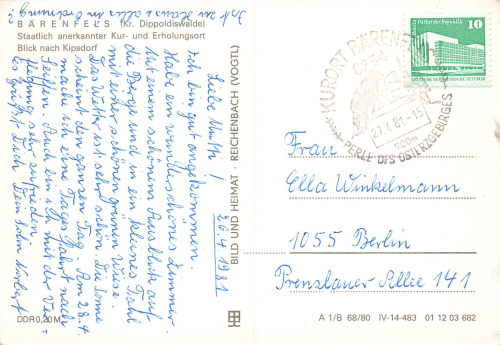 Ist zu Hause alles in Ordnung?
BÄRENFELS (Kr. Dippoldiswalde)
Staatlich anerkannter Kur- und Erholungsort
Blick nach Kipsdorf
20.4.1981
Liebe Mutti!
Ich bin gut angekommen.
Habe ein wunderschönes Zimmer
mit einem schönen Ausblick auf
die Berge und in ein kleines Tahl
mit einer schönen grünen Wiese.
Das Wetter ist sehr schön. Die Sonne
scheint den ganzen Tag. Am 28.4.
mache ich eine Tagesfahrt nach
Seiffen. Auch bin ich mit der Ver-
pflegung sehr zufrieden.
Es grüßt Dich Dein Sohn Norbert
DDR 0,20 M
BILD UND HEIMAT · REICHENBACH (VOGTL)
KURORT BÄRENFELS
8234
27.4.81-15
700m
PERLE DES OSTERZGEBIRGES
Palast der Republik
10
DEUTSCHE DEMOKRATISCHE REPUBLIK
Frau
Ella Winkelmann
1055 Berlin
Prenslauer Allee 141
A 1/B 68/80 IV-14-483 01 12 03 682